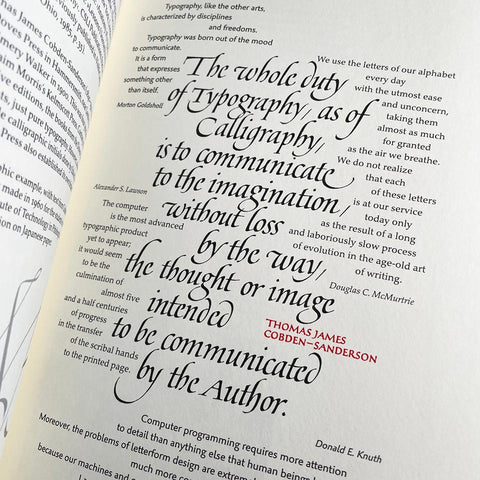 James Cobden-Sanderson
Press in Hammersmith
Walker in 1900. The
Morris's Kelmscott Press
editions, the books
just pure typography
calligraphic initials
Press also established
example, with text
made in 1961 for the
of Technology, in
on Japanese paper.
Typography, like the other arts,
is characterized by disciplines
and freedoms.
Typography was born out of the mood
to communicate.
It is a form
that expresses
something other
than itself.
Morton Goldsholl
We use the letters of our alphabet
every day
with the utmost ease
and unconcern,
taking them
almost as much
for granted
as the air we breathe.
We do not realize
that each
of these letters
is at our service
today only
as the result of a long
and laboriously slow process
of evolution in the age-old art
of writing.
Douglas C. McMurtrie
The whole duty
of Typography, as of
Calligraphy,
is to communicate
to the imagination,
without loss
by the way,
the thought or image
intended
to be communicated
by the Author.
THOMAS JAMES
COBDEN–SANDERSON
Alexander S. Lawson
The computer
is the most advanced
typographic product
yet to appear;
it would seem
to be the
culmination of
almost five
and a half centuries
of progress
in the transfer
of the scribal hands
to the printed page.
Donald E. Knuth
Computer programming requires more attention
to detail than anything else that human beings
Moreover, the problems of letterform design are
because our machines and
much more